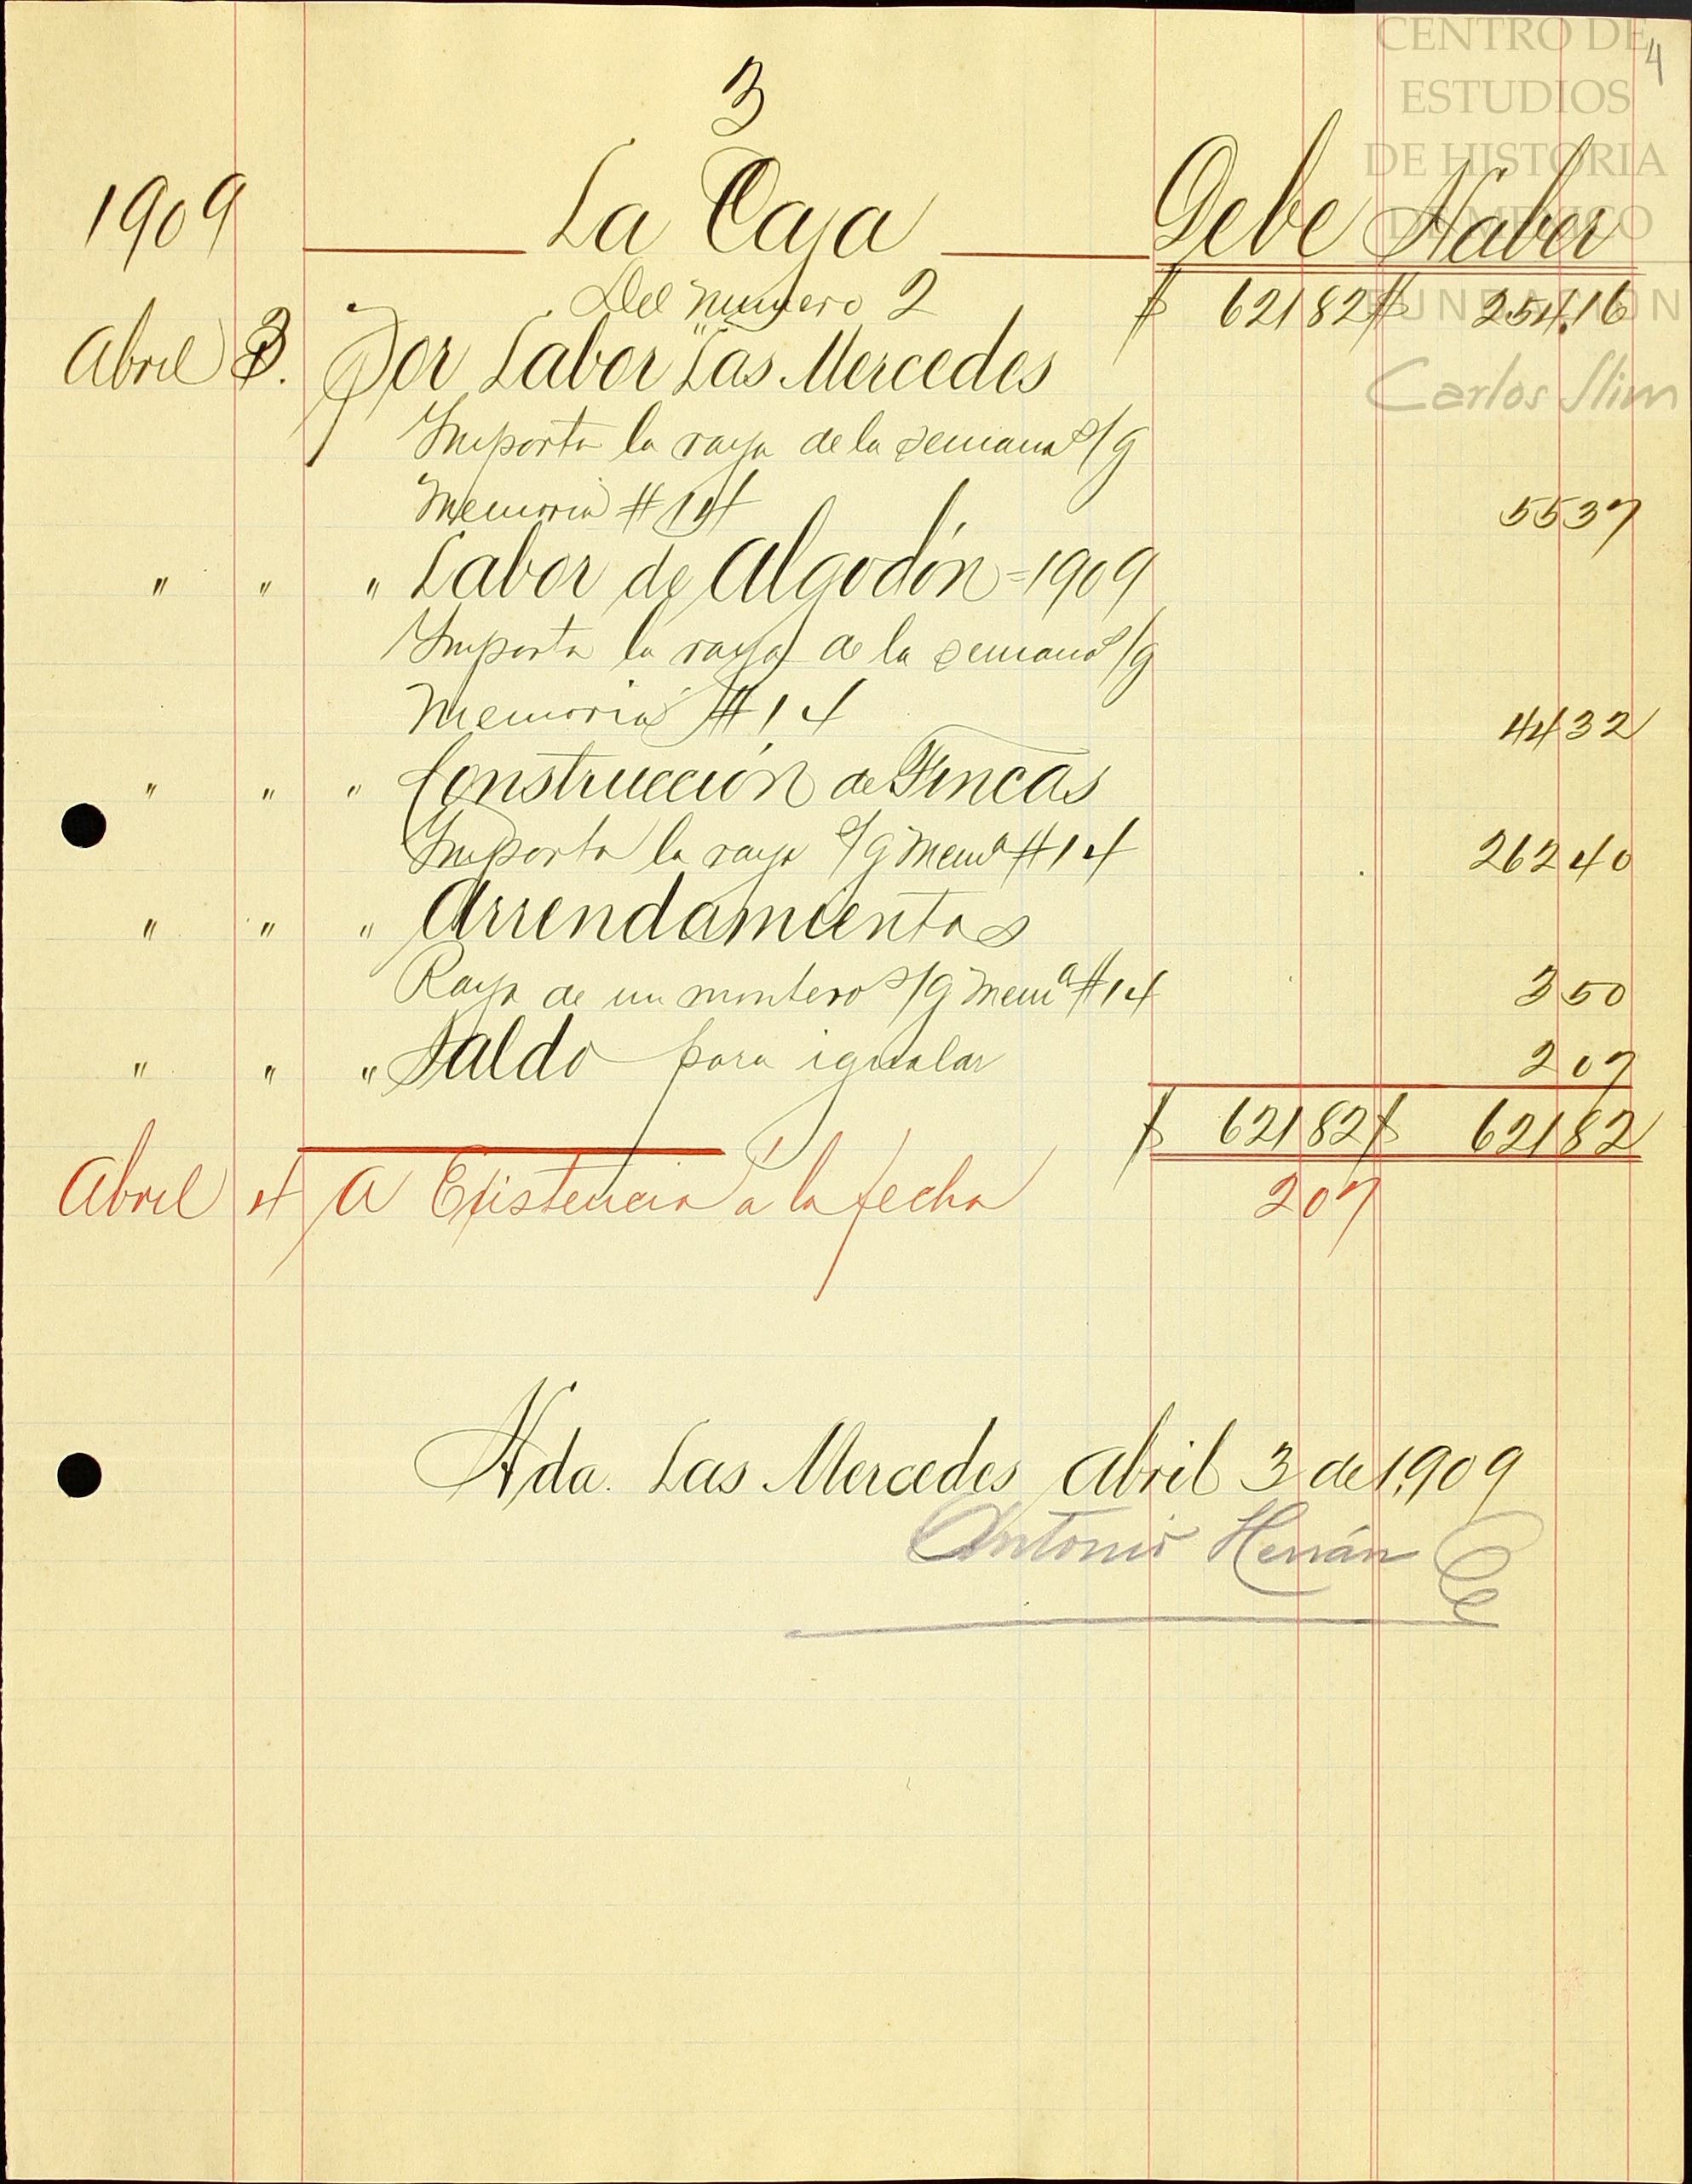 CENTRO DE
ESTUDIOS
DE HISTORIA
DE MÉXICO
FUNDACIÓN
Carlos Slim
4
3
1909 La Caja Debe Haber
Del numero 2 $ 621 82 $ 254.16
Abril 3. Por Labor "Las Mercedes
Importa la raya de la semana s/g
Memoria #14 55 37
" " " Labor de Algodón = 1909
Importa la raya de la semana s/g
Memoria #14 44 32
" " " Construcción de Fincas
Importa la raya s/g Memª #14 262 40
" " " Arrendamientos
Raya de un montero s/g Memª #14 3 50
" " " Saldo para igualar 2 07
$ 621 82 $ 621 82
Abril 4 A Existencia á la fecha 2 07
Hda. Las Mercedes Abril 3 de 1,909
Antonio Hernán